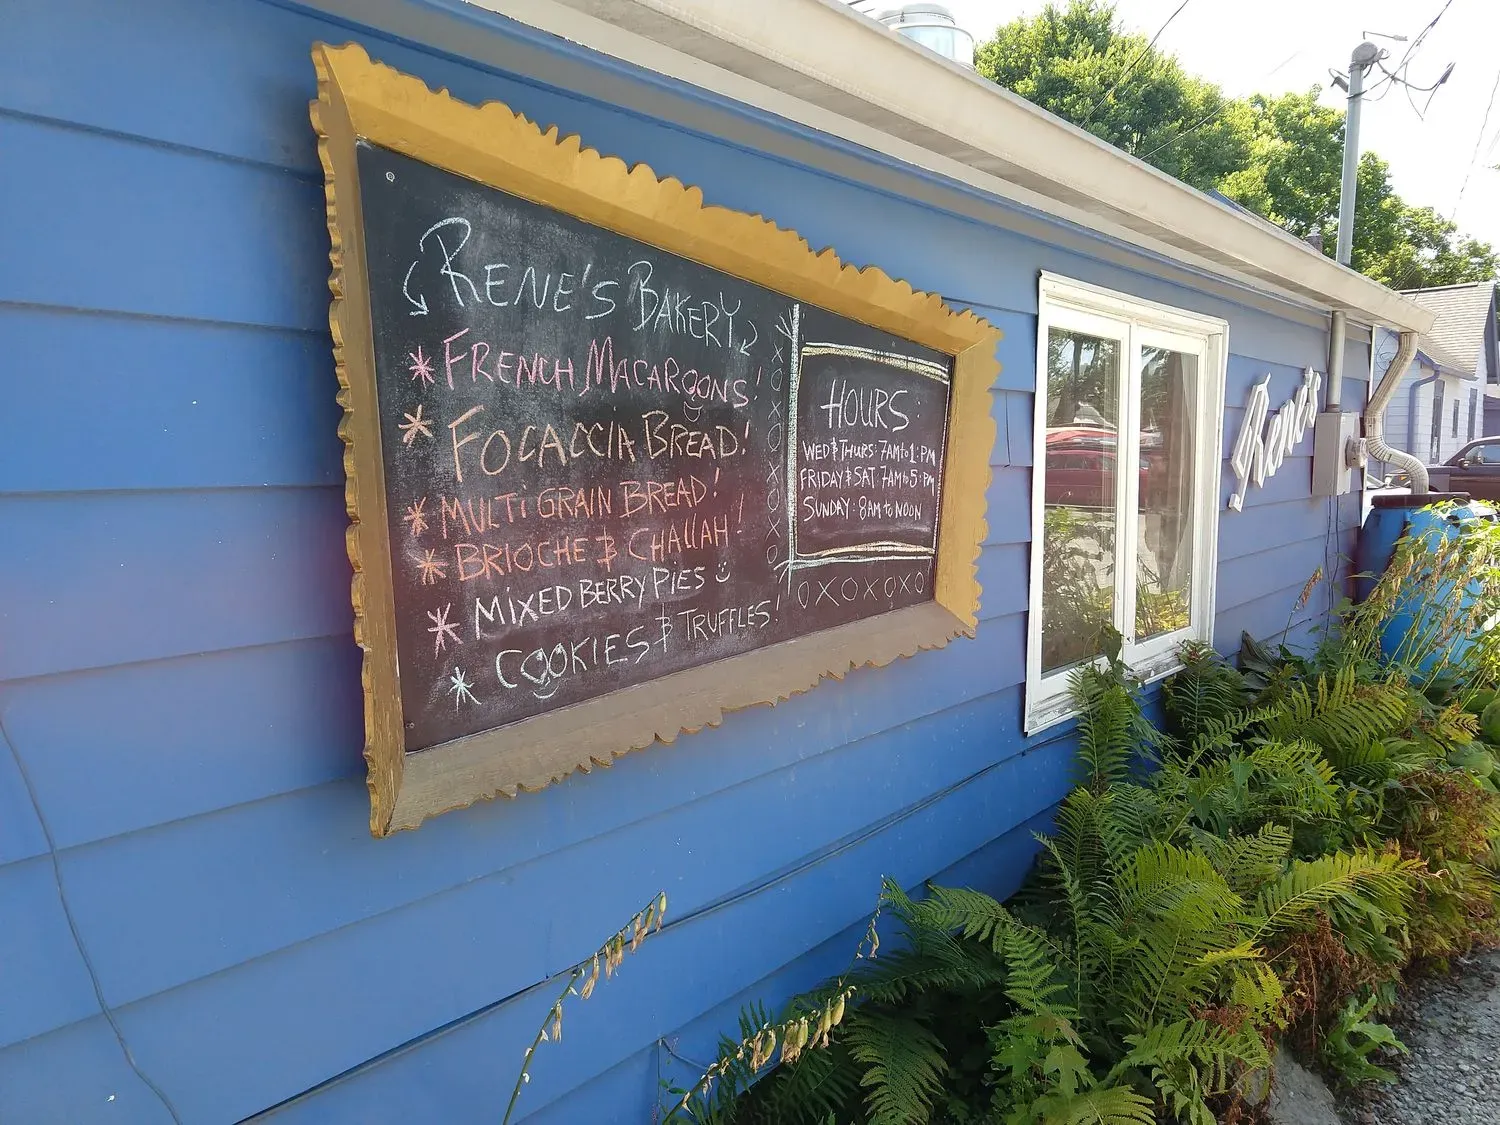 RENE'S BAKERY
* FRENCH MACAROONS!
* FOCACCIA BREAD!
* MULTIGRAIN BREAD!
* BRIOCHE & CHALLAH!
* MIXED BERRY PIES
* COOKIES & TRUFFLES!
HOURS:
WED & THURS: 7AM to 1:PM
FRIDAY & SAT 7AM to 5:PM
SUNDAY: 8AM to NOON
XOXOXOXO
OXOXOXO
Rene's